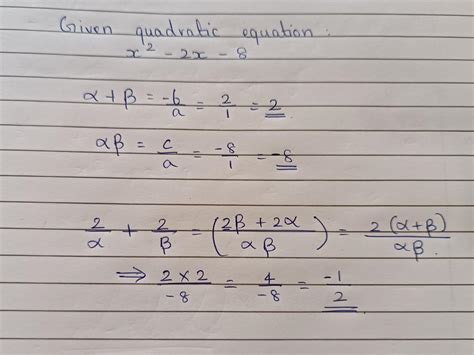 Given quadratic equation :
x² - 2x - 8
α + β = -b/a = 2/1 = 2
αβ = c/a = -8/1 = -8
2/α + 2/β = (2β + 2α / αβ) = 2(α+β)/αβ.
⇒ 2×2/-8 = 4/-8 = -1/2